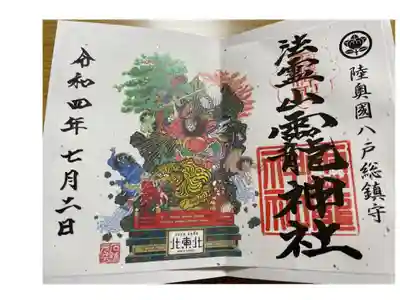 陸奥國八戸総鎮守
法霊山龗神社
北東北
令和四年 七月二日